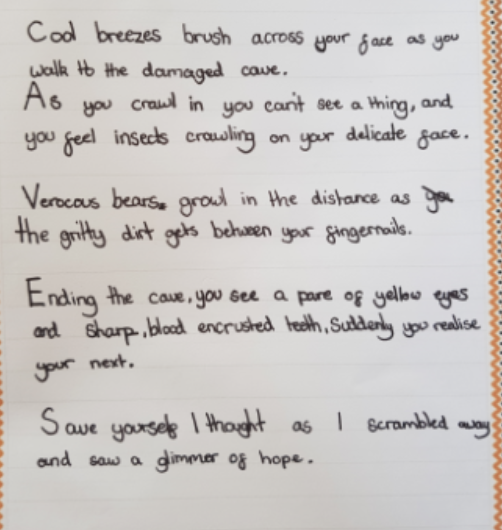 Cool breezes brush across your face as you
walk to the damaged cave.
As you crawl in you can't see a thing, and
you feel insects crawling on your delicate face.
Verocous bears. growl in the distance as
the gritty dirt gets between your fingernails.
Ending the cave, you see a pare of yellow eyes
and sharp, blood encrusted teeth, Suddenly you realise
your next.
Save yourself I thought as I scrambled away
and saw a glimmer of hope.